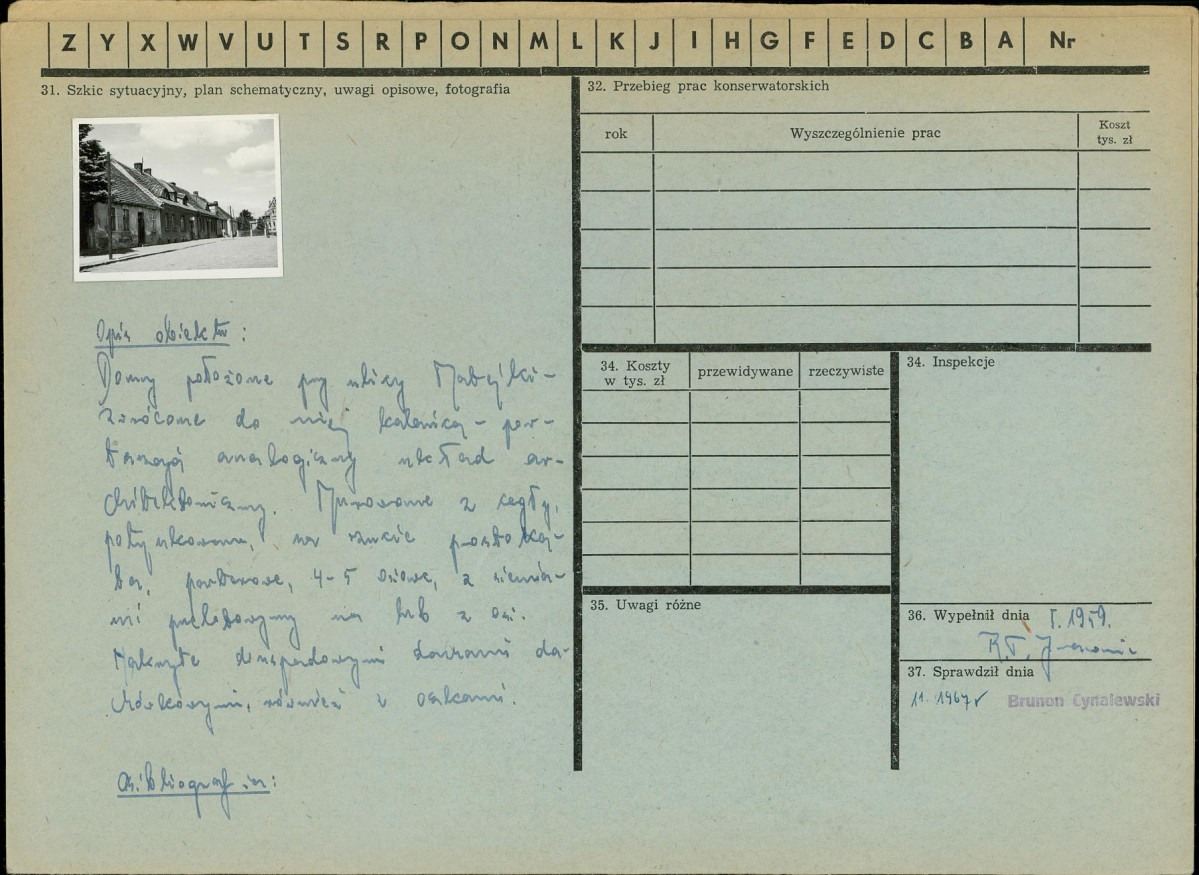 Z Y X W V U T S R P O N M L K J I H G F E D C B A Nr
31. Szkic sytuacyjny, plan schematyczny, uwagi opisowe, fotografia
Opis obiektu:
Domy położone przy ulicy
zwrócone do niej kalenicą - pow-
tarzają analogiczny układ ar-
chitektoniczny. Murowane z cegły,
potynkowane, na rzucie prostoką-
ta, parterowe, 4-5 osiowe, z sienia-
mi przelotowymi na lub z osi.
Nakryte dwuspadowymi dachami da-
chówkowymi, również z
Bibliografia:
32. Przebieg prac konserwatorskich
rok
Wyszczególnienie prac
Koszt
tys. zł
34. Koszty
w tys. zł
przewidywane
rzeczywiste
34. Inspekcje
35. Uwagi różne
36. Wypełnił dnia 1959.
37. Sprawdził dnia
11. 1967 r Brunon Cynalewski